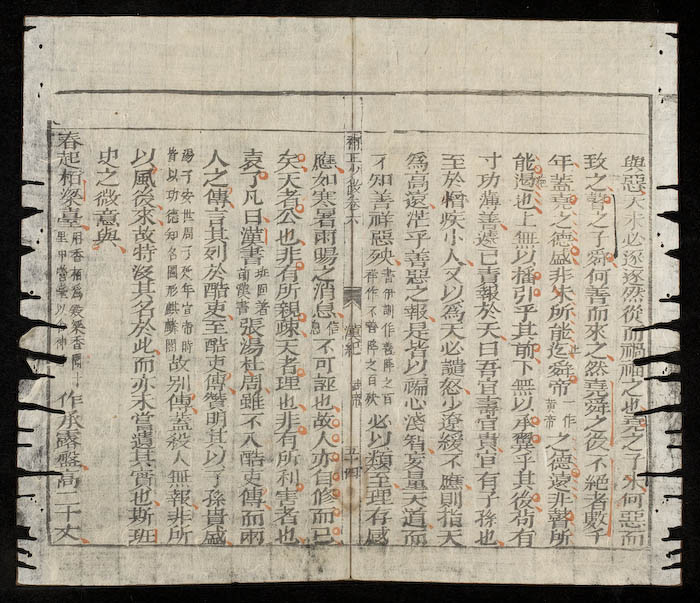 與惡天未必逐逐然從而禍福之也堯之子朱何惡而
致之瞽之子舜何善而來之然堯舜之後不絕者數千
年蓋堯之德盛非朱所能迄舜帝之德遠非瞽所
能遏也上無以播引乎其前下無以承翼乎其後苟有
寸功薄善遂已責報於天曰吾宜壽宜貴宜有子孫也
至於憎疾小人又以爲天必譴怒少遼緩不應則指天
爲高遠茫乎善惡之報是皆以褊心淺智妄量天道而
不知善祥惡殃書伊訓作善降之百祥作不善降之百殃必以類至理存感
卷六
漢紀
武帝
應如寒暑雨暘之消息不可誣也故人亦自修而已
矣天者公也非有所親疎天者理也非有所利害者也
袁了凡曰漢書班固著前漢書張湯杜周雖不入酷吏傳而兩
人之傳言其列於酷吏至酷吏傳贊明其以子孫貴盛
湯子安世周子延年宣帝時皆以功德知名圖形麒麟閣故別傳蓋殺人無報非所
以風後來故特沒其名於此而亦未嘗遺其實也斯班
史之微意與
春起柏梁臺用香柏爲殿梁香聞十里作承露盤高二十丈